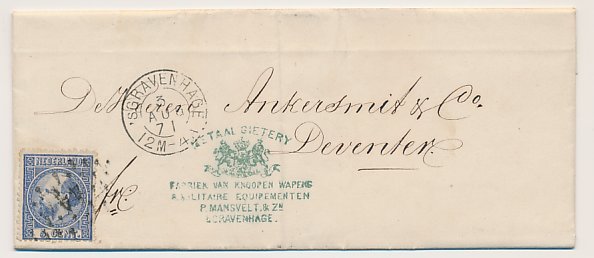 'SGRAVENHAGE
3
AUG
71
12M-4A.
De Heeren Ankersmit & Co.
Deventer
METAALGIETERY
FABRIEK VAN KNOOPEN WAPENS
& MILITAIRE EQUIPEMENTEN
P. MANSVELT. & ZN
SGRAVENHAGE.
NEDERLAND
5 CENT.
fr.